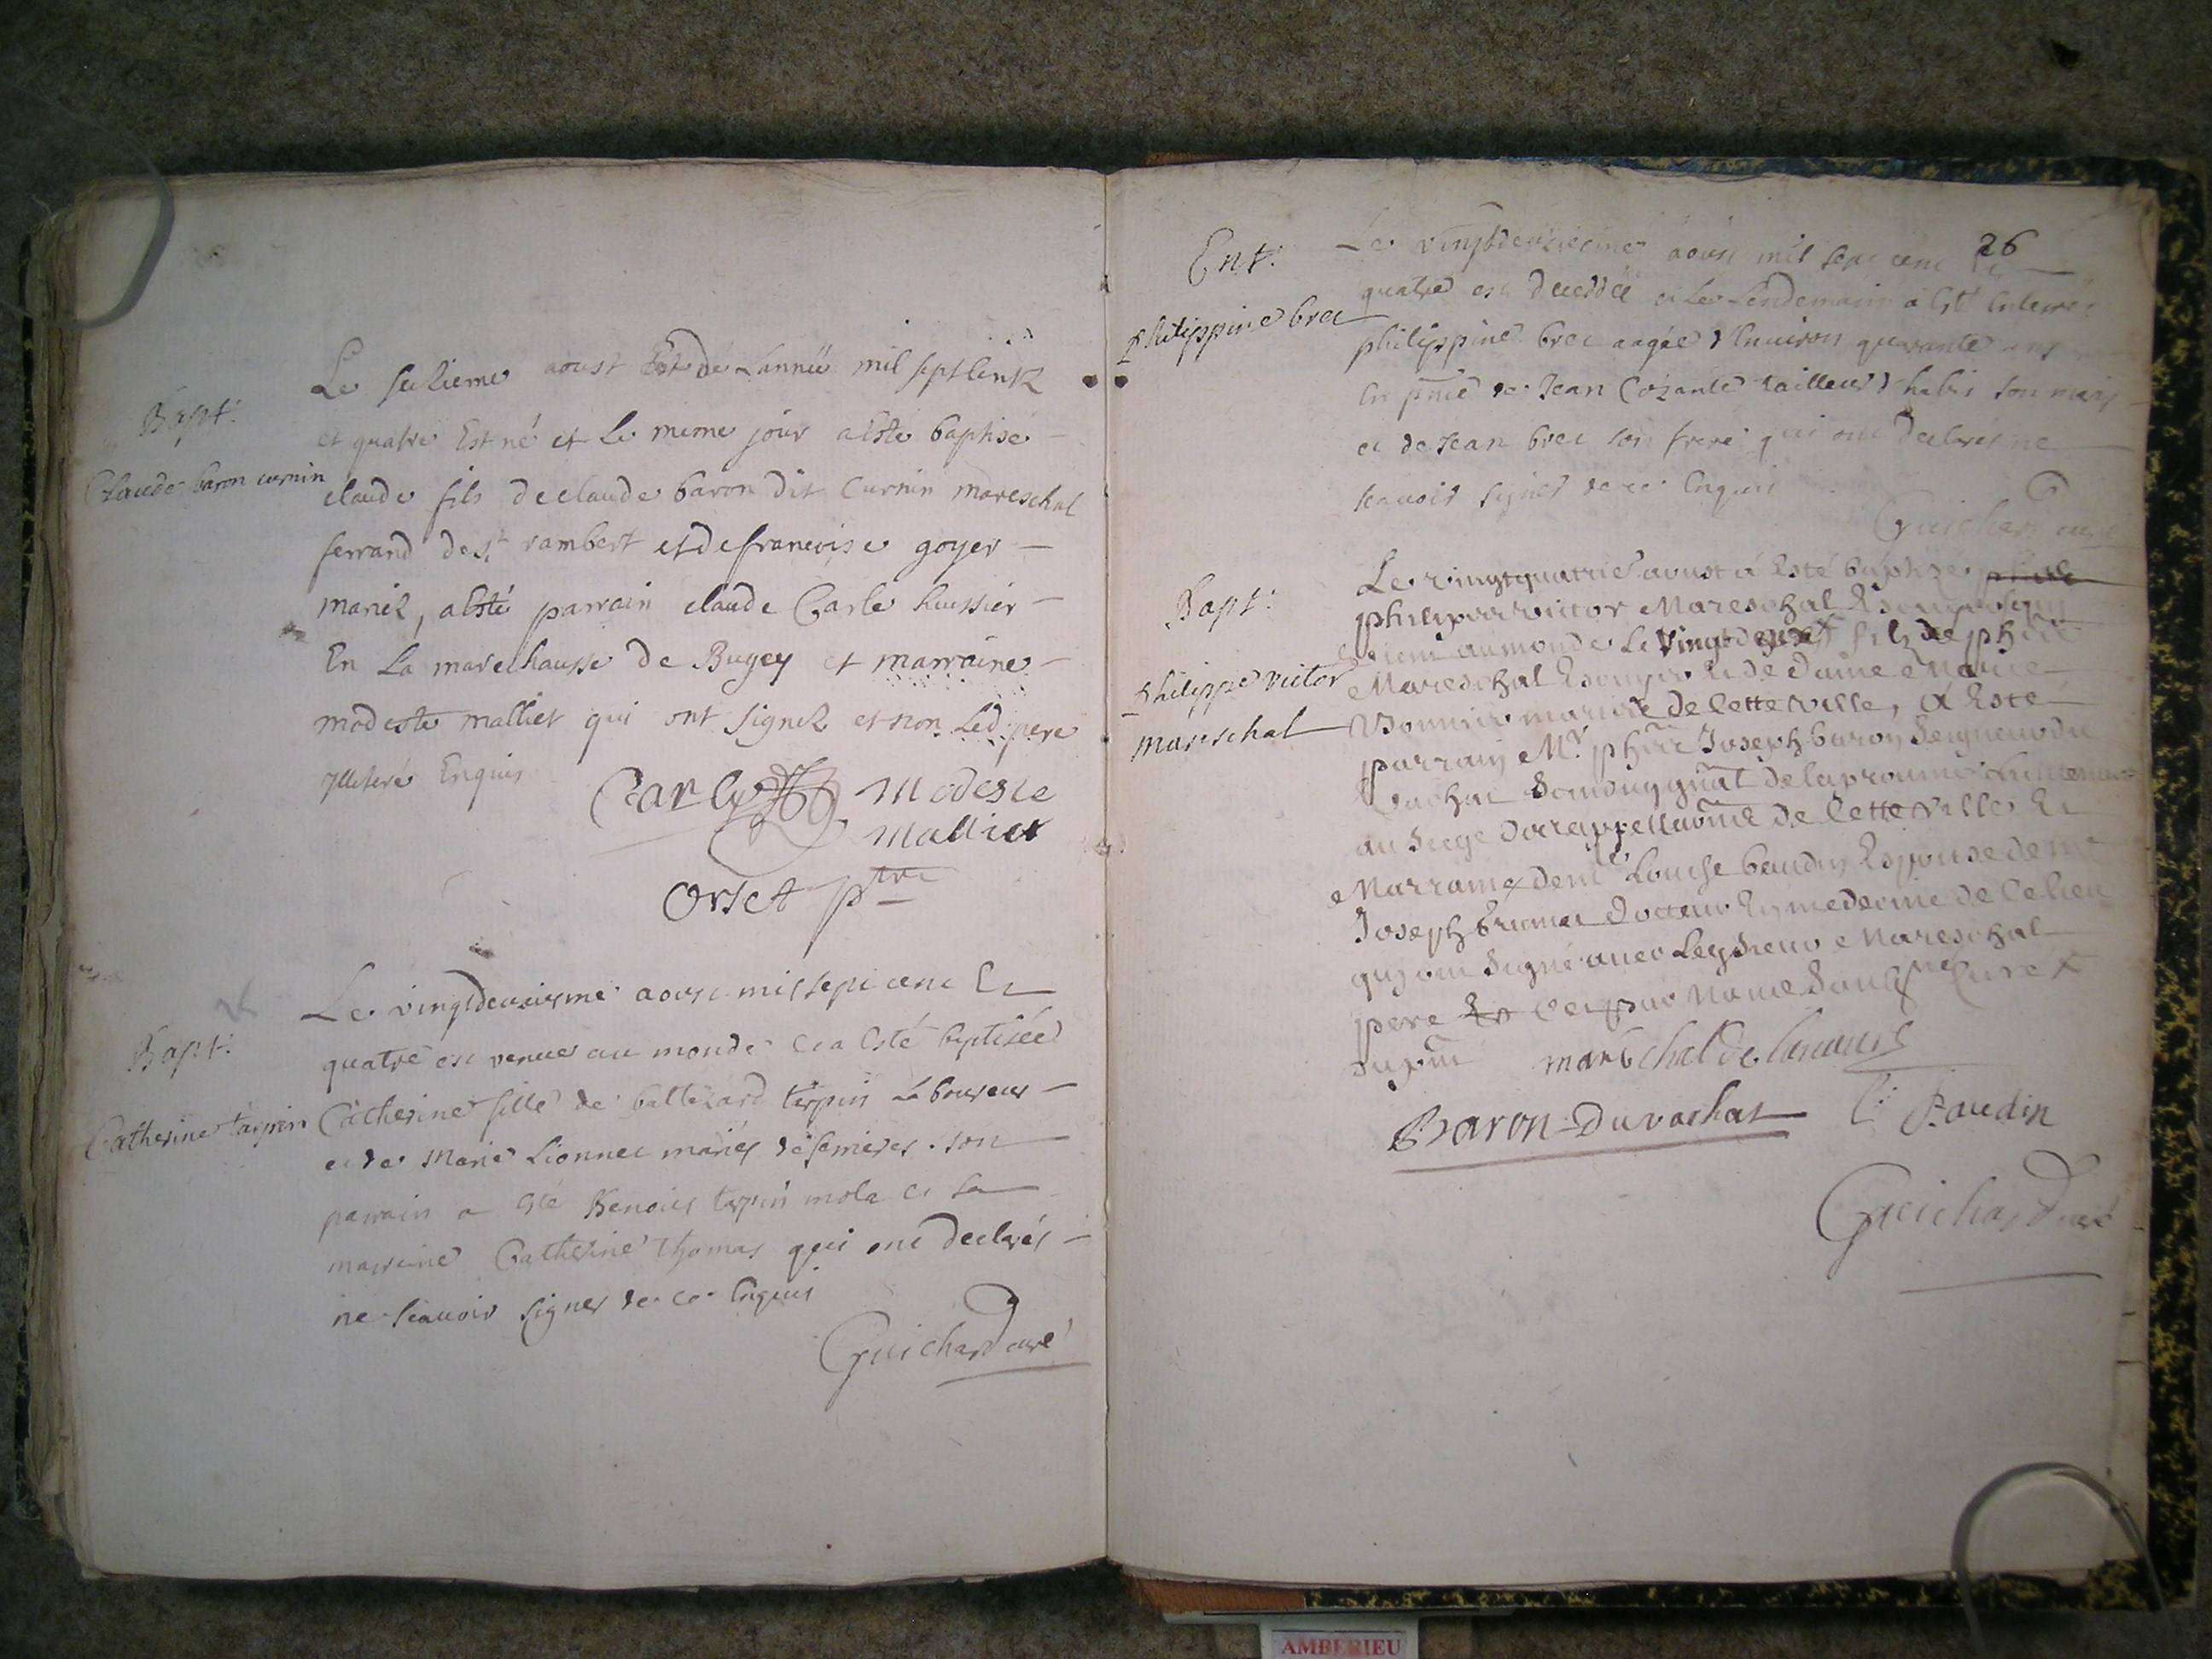 Bapt:
Claude baron curnin
Le seizieme aoust de Lannée mil sept centz
et quatre Est né et le meme jour a esté baptisé
claude fils de claude baron dit Curnin mareschal
ferrand de st rambert et de francoise goyer
mariez, a esté parrain claude Carle huissier
En La marechausse de Bugey et marraine
modeste malliet qui ont signez et non Led: pere
illiteré Enquis
Carle Modeste
Malliet
Orset ptre
Bapt:
Catherine tarpin
Le vingtdeuxiesme aoust mil sept cent Et
quatre est venue au monde et a esté baptisée
Catherine fille de baltezard tarpin Laboureur
et de Marie Lionnet mariés son
parrain a esté Benoist tarpin mola et sa
marraine Catherine Thomas qui ont declarés
ne scauoir signer de ce Enquis
Guichard curé
26
Ent:
philippine bret
Le vingtdeuxiesme aoust mil sept cent et
quatre est decedée et Le Lendemain a esté Enterrée
philippine bret aagée d'Enuiron quarante ans
En pnce de Jean tailleur d'habis son mary
et de Jean bret son frere qui ont declarés ne
scauoir signer de ce Enquis
Guichard curé
Bapt:
philippe victor
mareschal
Le vingtquatrie aoust a Esté baptizé
philippe victor Mareschal Escuyer
venu au monde Le vingtdeux filz de
Mareschal Escuyer Et de dame Marie
mariez de Cette ville, A Esté
parrain Mr Joseph baron Seigneur du
Vachat
au Siege de Cette ville Et
Marraine Louise baudin Espouse de Mr
Joseph docteur En medecine de Ce lieu
qui ont Signé auec Leq Sieur Mareschal
pere
mareschal de
Baron-Duvachat L: Baudin
Guichard curé
AMBERIEU